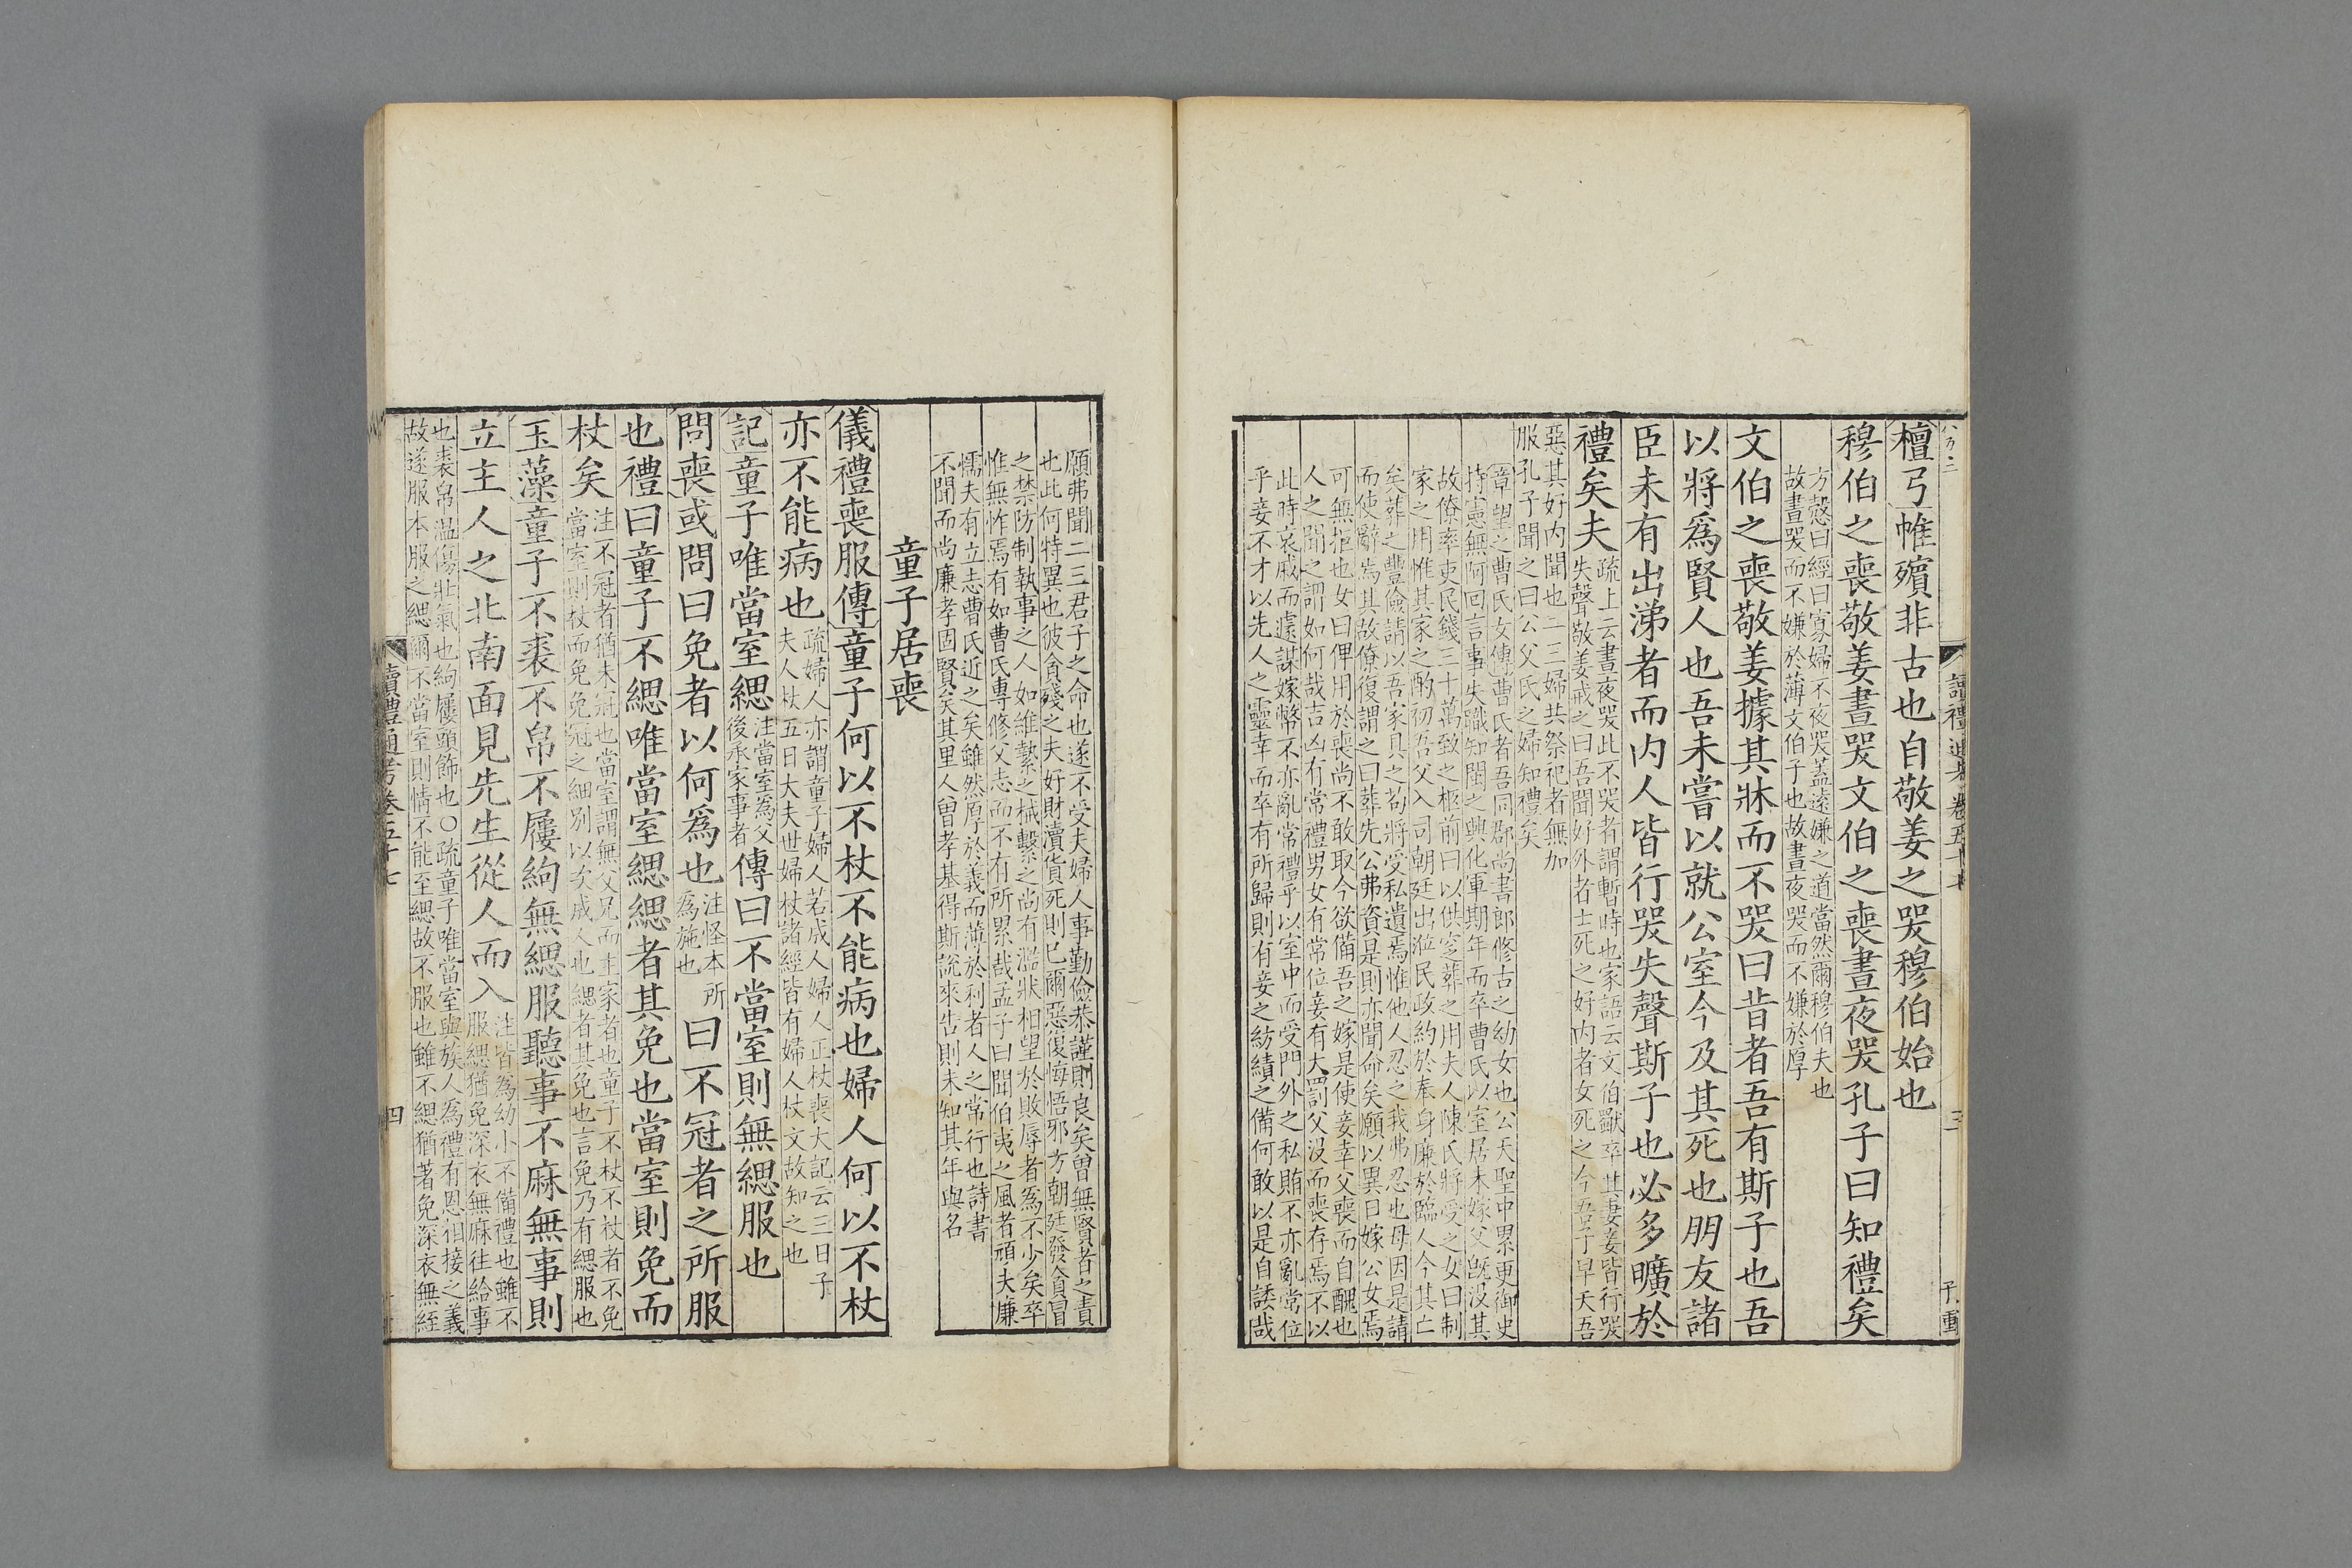 檀弓帷殯非古也自敬姜之哭穆伯始也
方慤曰經曰寡婦不夜哭蓋遠嫌之道當然爾穆伯夫也
故晝哭而不嫌於薄文伯子也故晝夜哭而不嫌於厚
穆伯之喪敬姜晝哭文伯之喪晝夜哭孔子曰知禮矣
文伯之喪敬姜據其牀而不哭曰昔者吾有斯子也吾
以將爲賢人也吾未嘗以就公室今及其死也朋友諸
臣未有出涕者而内人皆行哭失聲斯子也必多曠於
禮矣夫
疏上云晝夜哭此不哭者謂暫時也家語云文伯歜卒其妻妾皆行哭
失聲敬姜戒之曰吾聞好外者士死之好内者女死之今吾子早夭吾
惡其好内聞也二三婦共祭祀者無加
服孔子聞之曰公父氏之婦知禮矣
章望之曹氏女傳曹氏者吾同郡尚書郎修古之幼女也公天聖中累更御史
持憲無阿回言事失職知閩之興化軍期年而卒曹氏以室居未嫁父旣没其
故僚率吏民錢三十萬致之柩前曰以供窆葬之用夫人陳氏將受之女曰制
家之用惟其家之酌初吾父入司朝廷出涖民政約於奉身廉於臨人今其亡
矣葬之豐儉請以吾家具之苟將受私遺焉惟他人忍之我弗忍也母因是請
而使辭焉其故僚復謂之曰葬先公弗資是則亦聞命矣願以異日嫁公女焉
可無拒也女曰俾用於喪尚不敢取今欲備吾之嫁是使妾幸父喪而自醜也
人之聞之謂如何哉吉凶有常禮男女有常位妾有大罰父没而喪存焉不以
此時哀戚而遽謀嫁幣不亦亂常禮乎以室中而受門外之私賄不亦亂常位
乎妾不才以先人之靈幸而卒有所歸則有妾之紡績之備何敢以是自諉哉
讀禮通考卷五十七
三
願弗聞二三君子之命也遂不受夫婦人事勤儉恭謹則良矣曽無賢者之責
也此何特異也彼貪殘之夫好財瀆貨死則已爾惡復悔悟邪方朝廷發貪冒
之禁防制執事之人如維縶之械繫之尚有濫狀相望於敗辱者爲不少矣卒
惟無怍焉有如曹氏專修父志而不有所累哉孟子曰聞伯夷之風者頑夫廉
懦夫有立志曹氏近之矣雖然厚於義而薄於利者人之常行也詩書
不聞而尚廉孝固賢矣其里人曾孝基得斯說來告則未知其年與名
童子居喪
儀禮喪服傳童子何以不杖不能病也婦人何以不杖
亦不能病也
疏婦人亦謂童子婦人若成人婦人正杖喪大記云三日子
夫人杖五日大夫世婦杖諸經皆有婦人杖文故知之也
記童子唯當室緦
注當室爲父
後承家事者
傳曰不當室則無緦服也
問喪或問曰免者以何爲也
注怪本所
爲施也
曰不冠者之所服
也禮曰童子不緦唯當室緦緦者其免也當室則免而
杖矣
注不冠者猶未冠也當室謂無父兄而主家者也童子不杖不杖者不免
當室則杖而免免冠之細別以次成人也緦者其免也言免乃有緦服也
玉藻童子不裘不帛不屨絇無緦服聽事不麻無事則
立主人之北南面見先生從人而入
注皆爲幼小不備禮也雖不
服緦猶免深衣無麻往給事
也裘帛溫傷壯氣也絇屨頭飾也○疏童子唯當室與族人爲禮有恩相接之義
故遂服本服之緦爾不當室則情不能至緦故不服也雖不緦猶著免深衣無絰
讀禮通考卷五十七
四